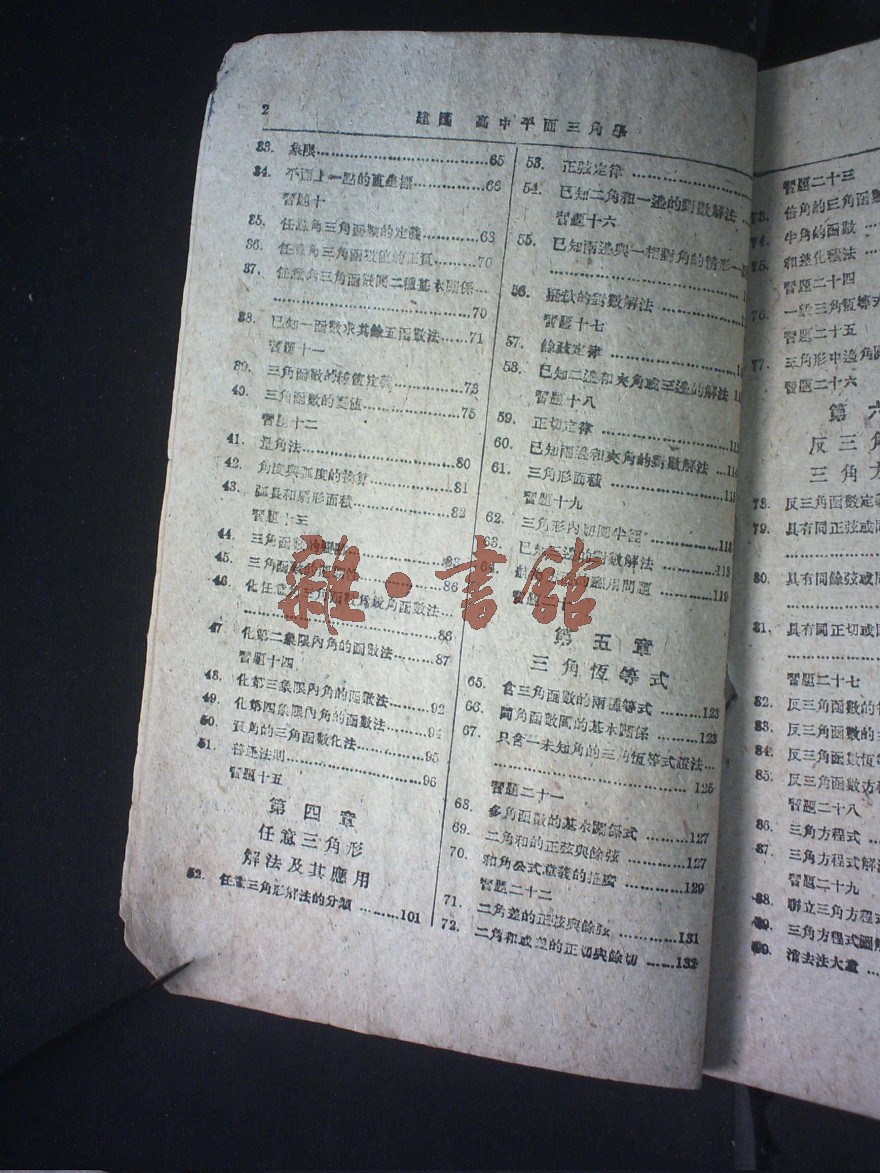 2
建國 高中平面三角學
33. 象限 65
34. 平面上一點的直坐標 66
習題十
35. 任意角三角函數的定義 68
36. 任意角三角函數值的正負 70
37. 任意角三角函數間二種基本關係
70
38. 已知一函數求其餘五函數法 71
習題十一
39. 三角函數的線值定義 73
40. 三角函數的變值 75
習題十二
41. 量角法 80
42. 角度與弧度的換算 81
43. 弧長和扇形面積 82
習題十三
44. 三角函數的 83
45. 三角函數的 86
46. 化任意 三角函數爲銳角函數法
86
47. 化第二象限內角的函數法 87
習題十四
48. 化第三象限內角的函數法 92
49. 化第四象限內角的函數法 94
50. 負角的三角函數化法 95
51. 法則 96
習題十五
第四章
任意三角形
解法及其應用
52. 任意三角形解法的分類 101
53. 正弦定律
54. 已知二角和一邊的對數解法
習題十六
55. 已知兩邊與一相對角的情形
56. 的對數解法
習題十七
57. 餘弦定律
58. 已知二邊和夾角或三邊的解法
習題十八
59. 正切定律
60. 已知兩邊和夾角的對數解法
61. 三角形面積
習題十九
62. 三角形內切圓半徑 118
63. 已知三邊的對數解法 118
64. 應用問題 119
習題二十
第五章
三角恆等式
65. 含三角函數的兩種等式 123
66. 同角函數間的基本關係 123
67. 只含一未知角的三角恆等式證法
125
習題二十一
68. 多角函數的基本關係式 127
69. 二角和的正弦與餘弦 127
70. 和角公式意義的推廣 129
習題二十二
71. 二角差的正弦與餘弦 131
72. 二角和或差的正切與餘切 132
雜·書館
習題二十三
73. 倍角的三角函數
74. 半角的函數
75. 和差化積法
習題二十四
76. 一般三角恆等式
習題二十五
77. 三角形中邊角
習題二十六
第六
反三角
三角方
78. 反三角函數定義
79. 具有同正弦或
80. 具有同餘弦或
81. 具有同正切或
習題二十七
82. 反三角函數的
83. 反三角函數的
84. 反三角函數恆
85. 反三角函數方
習題二十八
86. 三角方程式
87. 三角方程式解
習題二十九
88. 聯立三角方程式
89. 三角方程式圖
90. 消去法大意